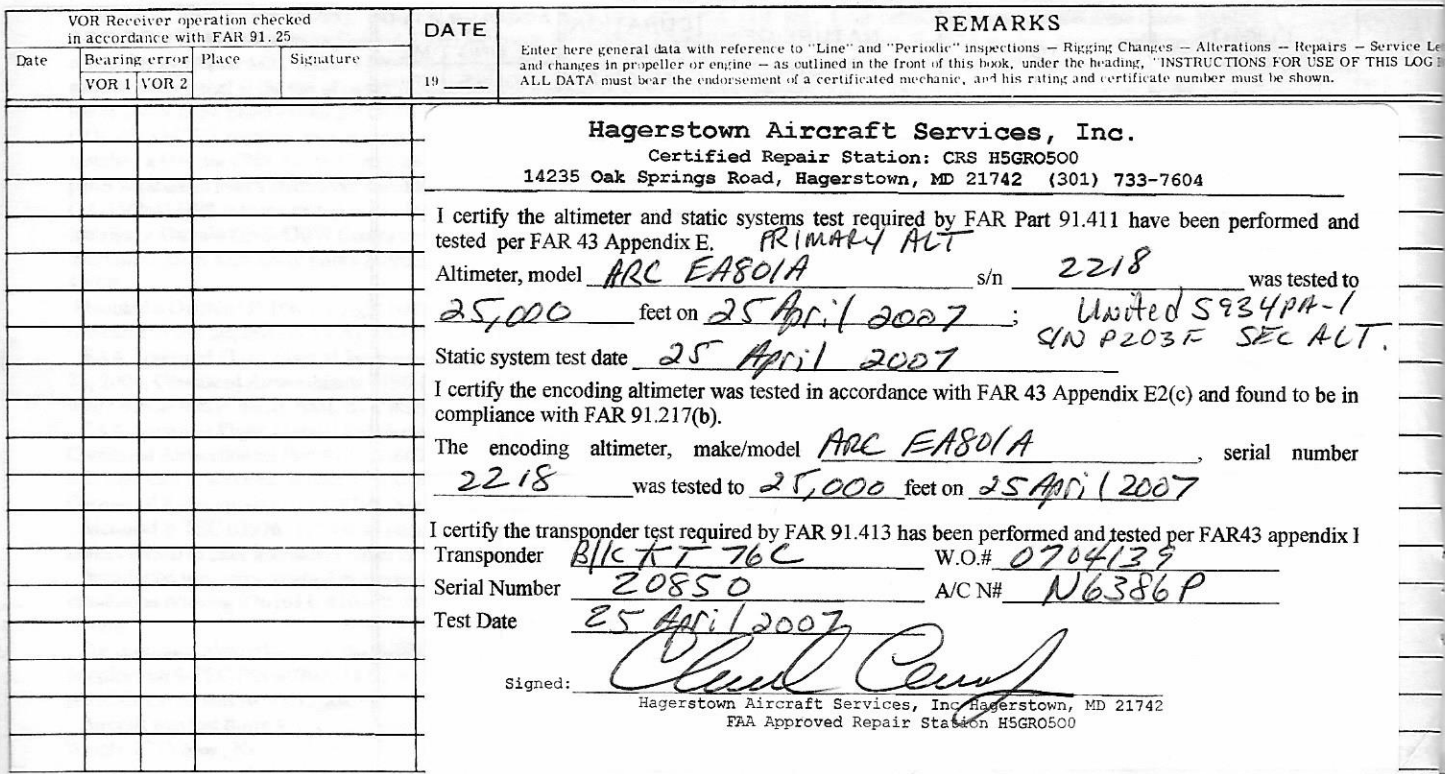 VOR Receiver operation checked
in accordance with FAR 91.25
Date Bearing error Place Signature
VOR 1 VOR 2
DATE
19
REMARKS
Enter here general data with reference to "Line" and "Periodic" inspections — Rigging Changes — Alterations — Repairs — Service Le
and changes in propeller or engine — as outlined in the front of this book, under the heading, "INSTRUCTIONS FOR USE OF THIS LOG
ALL DATA must bear the endorsement of a certificated mechanic, and his rating and certificate number must be shown.
Hagerstown Aircraft Services, Inc.
Certified Repair Station: CRS H5GRO500
14235 Oak Springs Road, Hagerstown, MD 21742 (301) 733-7604
I certify the altimeter and static systems test required by FAR Part 91.411 have been performed and
tested per FAR 43 Appendix E. PRIMARY ALT
Altimeter, model ARC EA801A s/n 2218 was tested to
25,000 feet on 25 April 2007 ; United 5934PA-1
S/N P203F SEC ALT.
Static system test date 25 April 2007
I certify the encoding altimeter was tested in accordance with FAR 43 Appendix E2(c) and found to be in
compliance with FAR 91.217(b).
The encoding altimeter, make/model ARC EA801A , serial number
2218 was tested to 25,000 feet on 25 April 2007
I certify the transponder test required by FAR 91.413 has been performed and tested per FAR43 appendix I
Transponder B/K KT 76C W.O.# 0704139
Serial Number 20850 A/C N# N6386P
Test Date 25 April 2007
Signed:
Hagerstown Aircraft Services, Inc Hagerstown, MD 21742
FAA Approved Repair Station H5GRO500